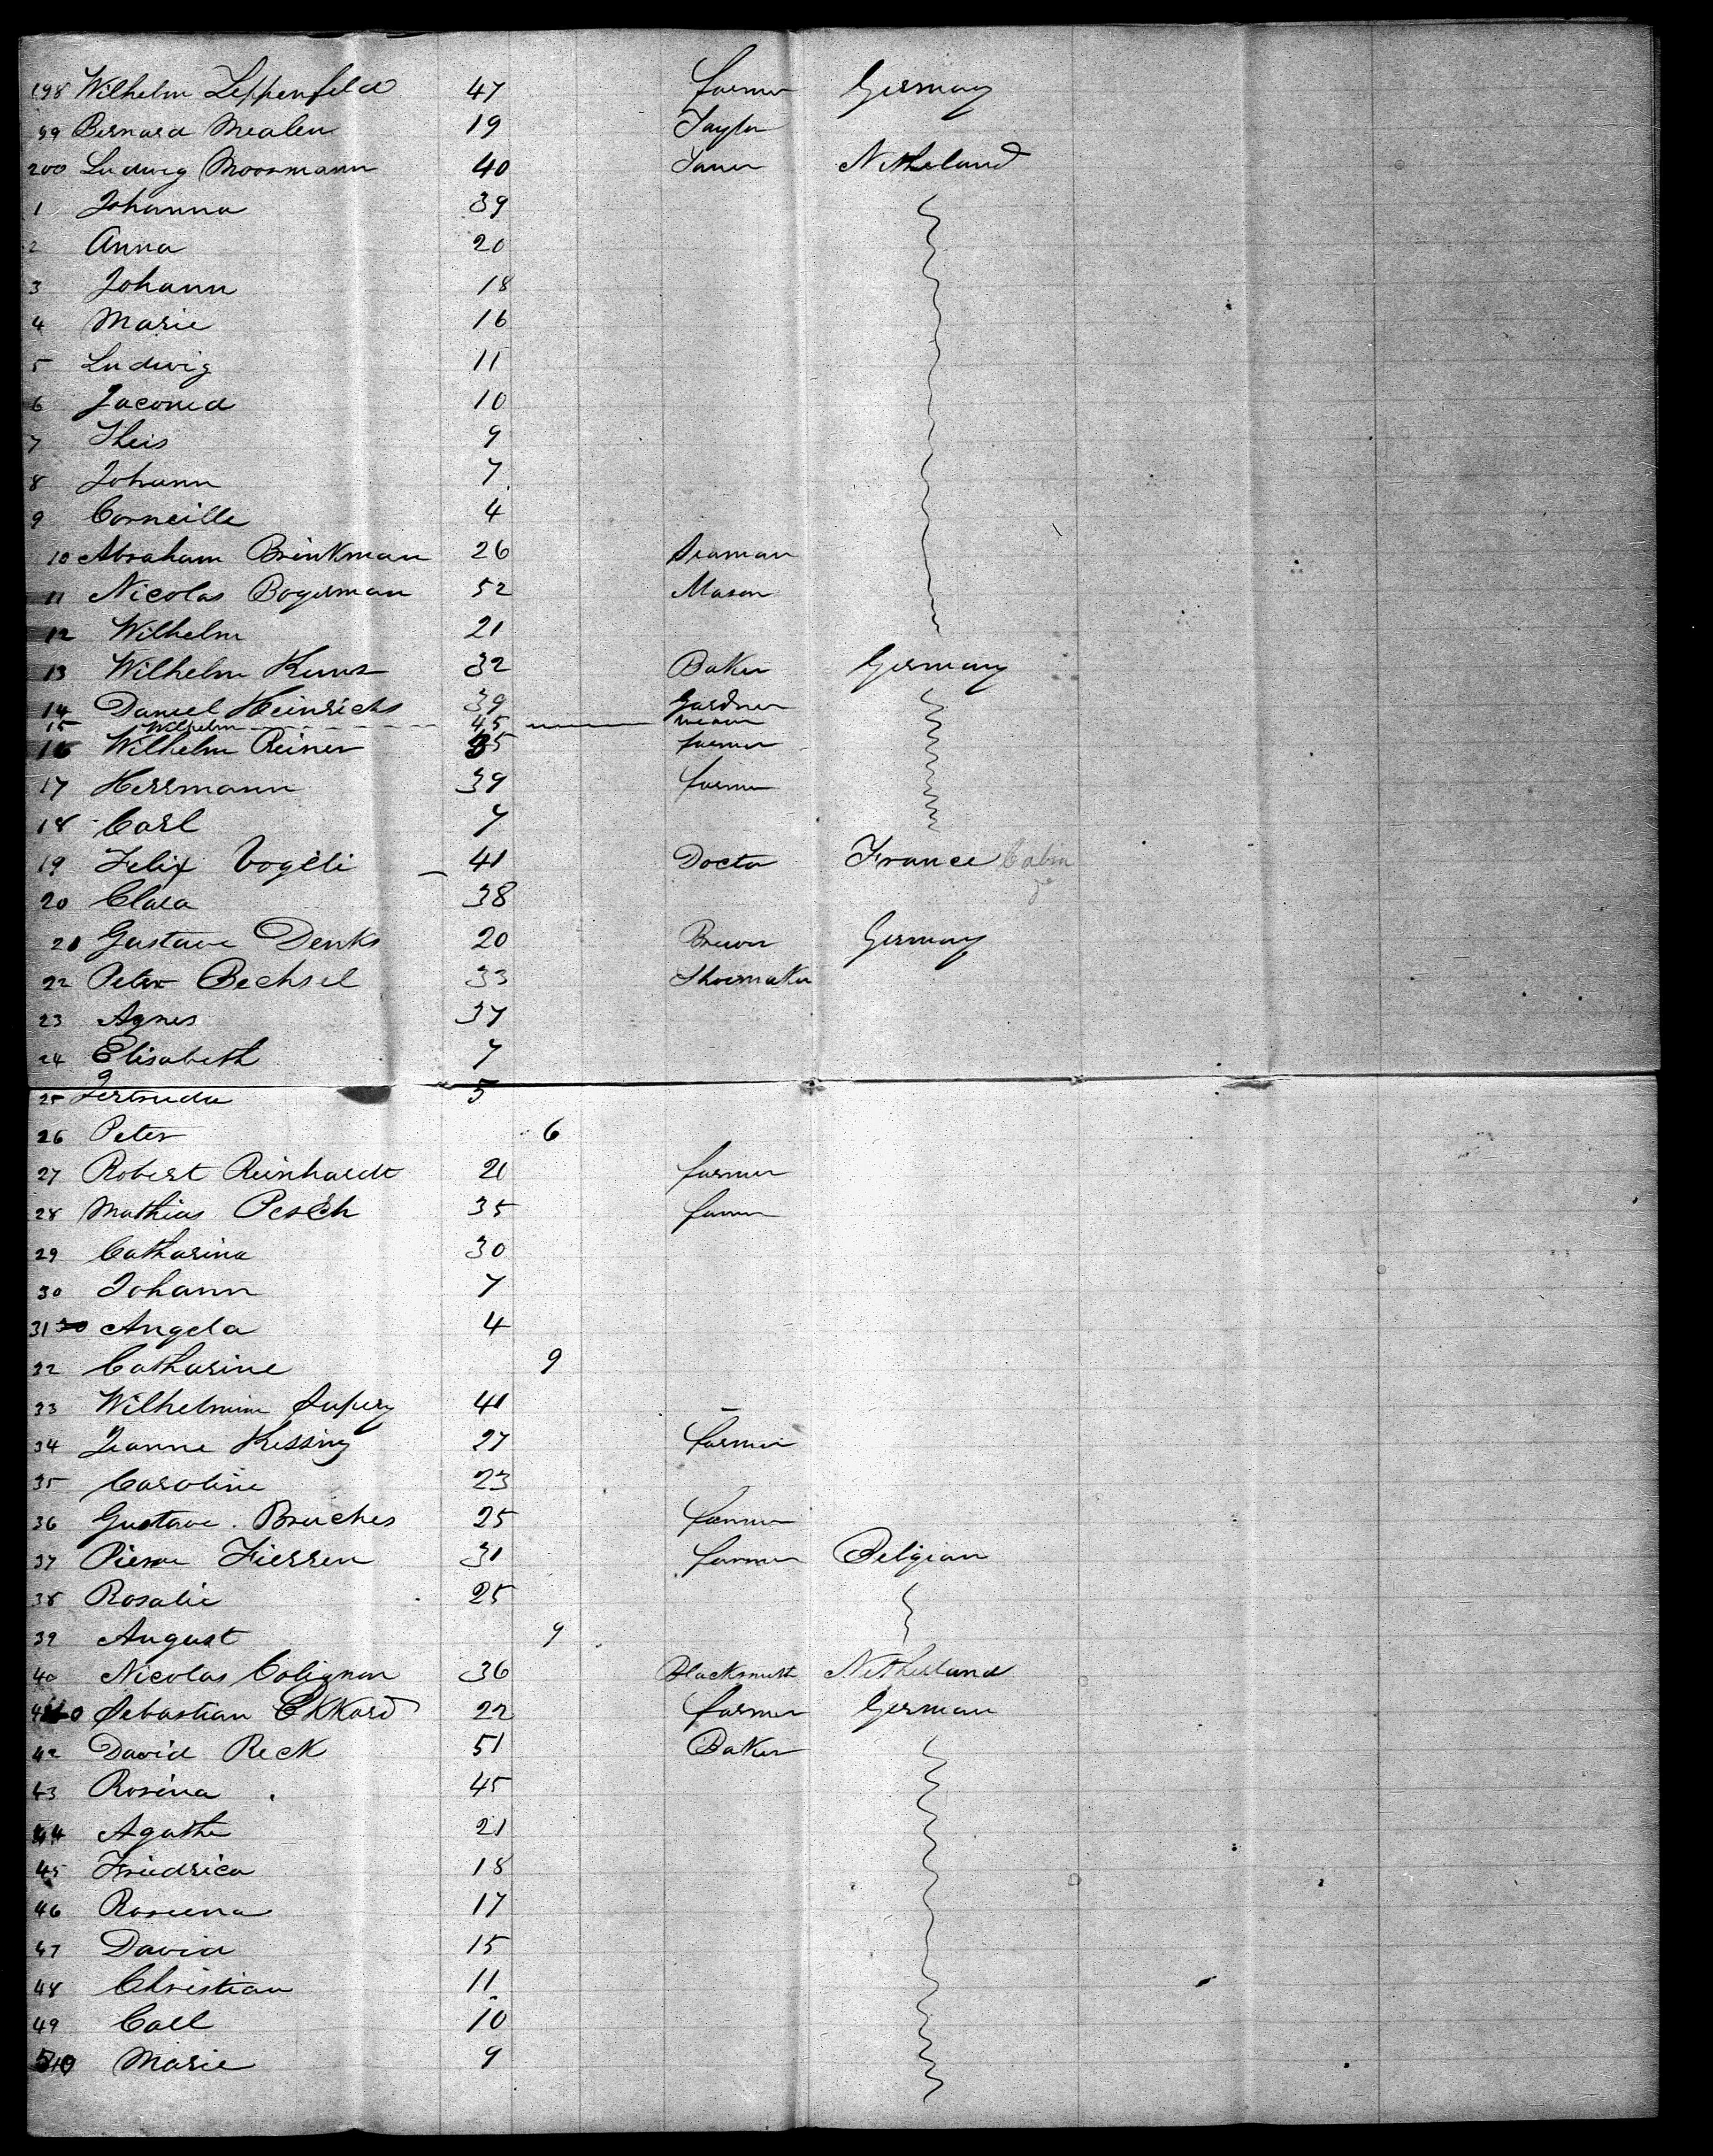 198 Wilhelm Leppenfeld 47 farmer Germany
99 Bernard Mealen 19 Taylor
200 Ludwig Moormann 40 Netheland
1 Johanna 39
2 Anna 20
3 Johann 18
4 Marie 16
5 Ludwig 11
6 Jaconed 10
7 Theis 9
8 Johann 7
9 Corneille 4
10 Abraham Brinkman 26 Seaman
11 Nicolas Bogerman 52 Mason
12 Wilhelm 21
13 Wilhelm Kuns 32 Baker Germany
14 Daniel Heinrichs 39 Gardner
15 Wilhelm 45
16 Wilhelm Reiner 35 farmer
17 Herrmann 39 farmer
18 Carl 7
19 Felix Vogeli 41 Doctor France Cabin
20 Clara 38
21 Gustave Denks 20 Brewer Germany
22 Peter Bechsel 33 Shoemaker
23 Agnes 37
24 Elisabeth 7
25 Gertruda 5
26 Peter 6
27 Robert Reinhardt 21 farmer
28 Mathias Pesch 35 farmer
29 Catharina 30
30 Johann 7
31 Angela 4
32 Catharine 9
33 Wilhelmine 41
34 Jeanne Kissing 27 farmer
35 Caroline 23
36 Gustave Bruches 25 farmer
37 Pierre Fierren 31 farmer Belgian
38 Rosalie 25
39 August 9
40 Nicolas Colignon 36 Blacksmith Netherland
41 Sebastian Ekkard 22 farmer German
42 David Reck 51 Baker
43 Rosina 45
44 Agathe 21
45 Friedrica 18
46 Roseena 17
47 David 15
48 Christian 11
49 Carl 10
50 Marie 9